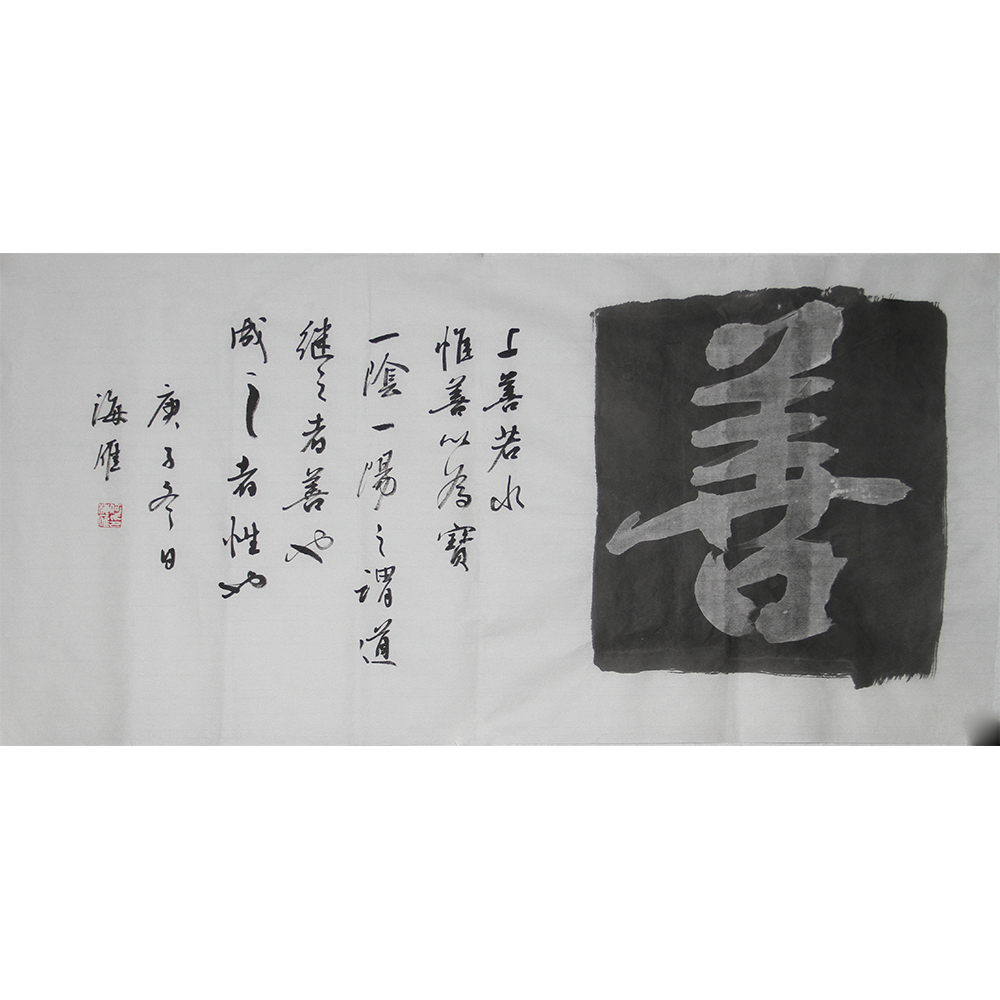 善
上善若水
惟善以為寶
一陰一陽之謂道
继之者善也
成之者性也
庚子冬日
海雁